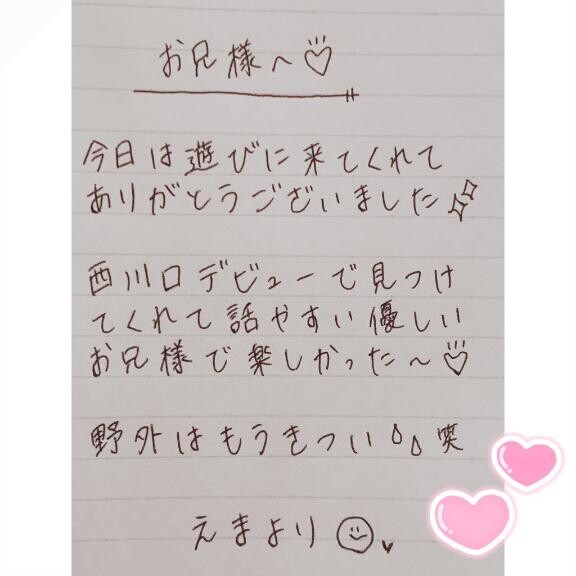 お兄様へ♡
今日は遊びに来てくれて
ありがとうございました✨
西川口デビューで見つけ
てくれて話やすい優しい
お兄様で楽しかった〜♡
野外はもうきつい💧笑
えまより☺♥